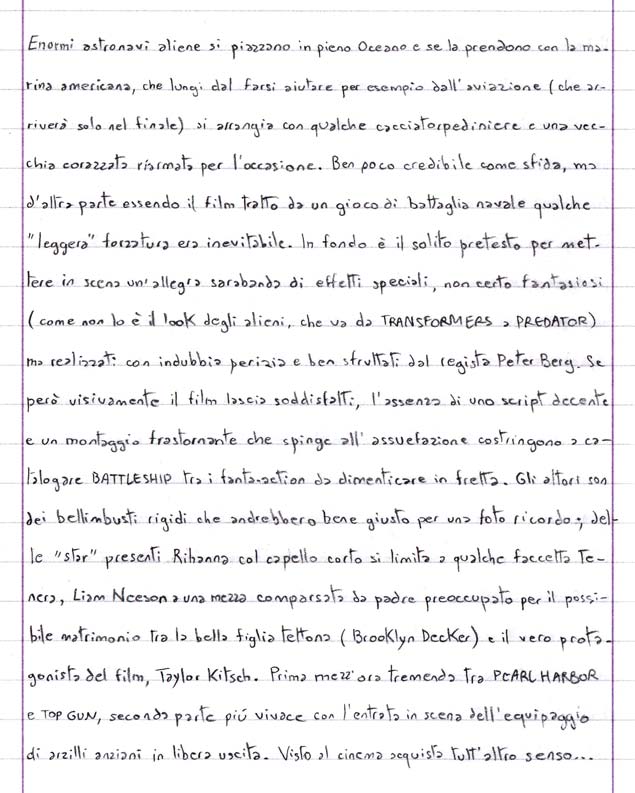 Enormi astronavi aliene si piazzano in pieno Oceano e se la prendono con la ma-
rina americana, che lungi dal farsi aiutare per esempio dall'aviazione (che ar-
riverà solo nel finale) si arrangia con qualche cacciatorpediniere e una vec-
chia corazzata riarmata per l'occasione. Ben poco credibile come sfida, ma
d'altra parte essendo il film tratto da un gioco di battaglia navale qualche
"leggera" forzatura era inevitabile. In fondo è il solito pretesto per met-
tere in scena un'allegra sarabanda di effetti speciali, non certo fantasiosi
(come non lo è il look degli alieni, che va da TRANSFORMERS a PREDATOR)
ma realizzati con indubbia perizia e ben sfruttati dal regista Peter Berg. Se
però visivamente il film lascia soddisfatti, l'assenza di uno script decente
e un montaggio frastornante che spinge all'assuefazione costringono a ca-
talogare BATTLESHIP tra i fanta-action da dimenticare in fretta. Gli attori son
dei bellimbusti rigidi che andrebbero bene giusto per una foto ricordo; del-
le "star" presenti Rihanna col capello corto si limita a qualche faccetta te-
nera, Liam Neeson a una mezza comparsata da padre preoccupato per il possi-
bile matrimonio tra la bella figlia tettona (Brooklyn Decker) e il vero prota-
gonista del film, Taylor Kitsch. Prima mezz'ora tremenda tra PEARL HARBOR
e TOP GUN, seconda parte piú vivace con l'entrata in scena dell'equipaggio
di arzilli anziani in libera uscita. Visto al cinema acquista tutt'altro senso...